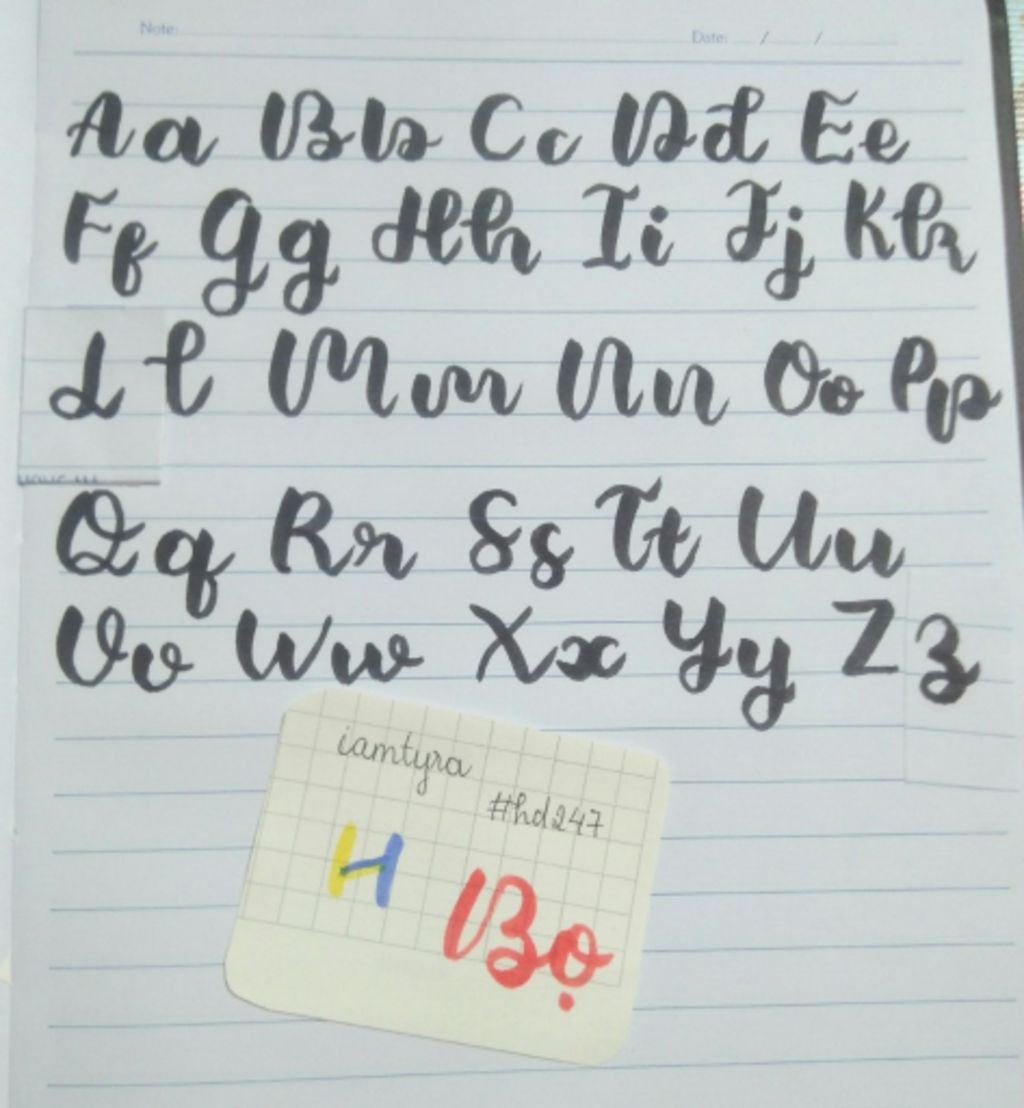 Note: Date: / /
Aa Bb Cc Dd Ee
Ff Gg Hh Ii Jj Kk
Ll Mm Nn Oo Pp
Qq Rr Ss Tt Uu
Vv Ww Xx Yy Zz
iamtyra
#hd247
H Bọ